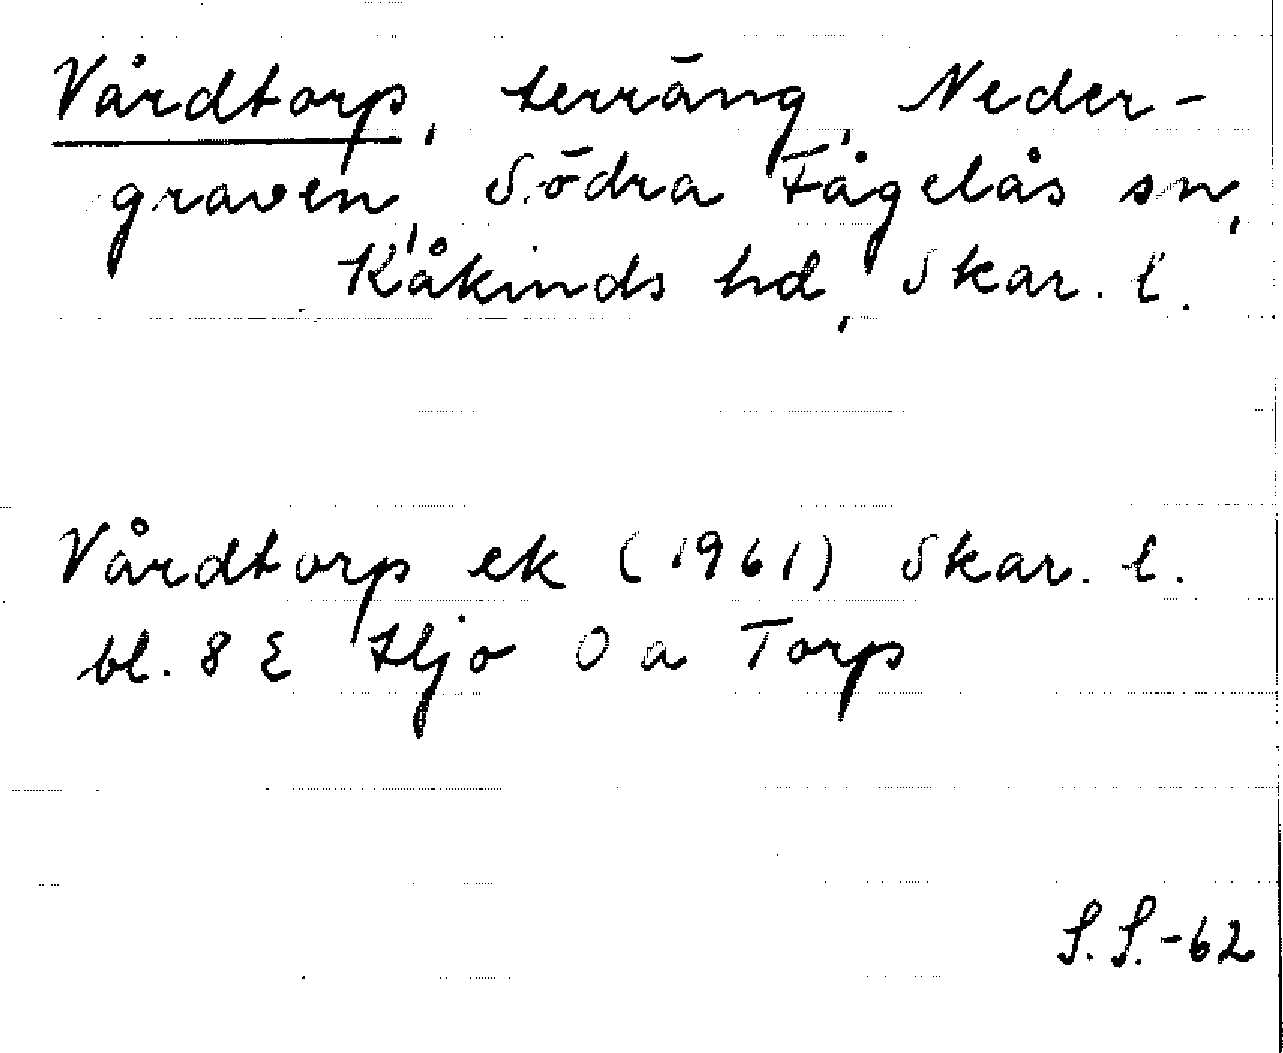 Vårdtorp, terräng, Neder-
graven, Södra Fågelås sn,
Kåkinds hd, Skar. l.
Vårdtorp ek (1961) Skar. l.
bl. 8 E Hjo 0 a Torp
S.S.-62